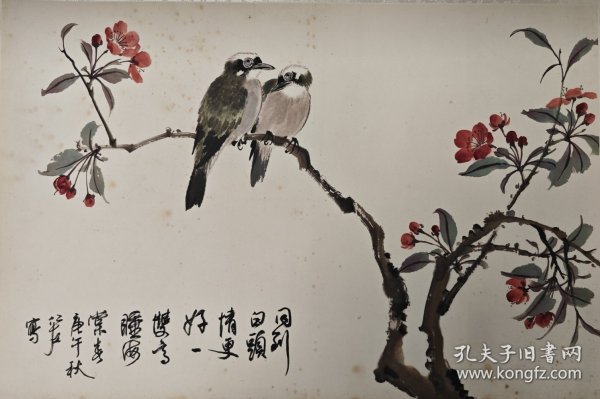 同到
白頭
情更
好一
雙高
睡海
棠春
庚午秋
寫
孔夫子旧書网
www.kongfz.com